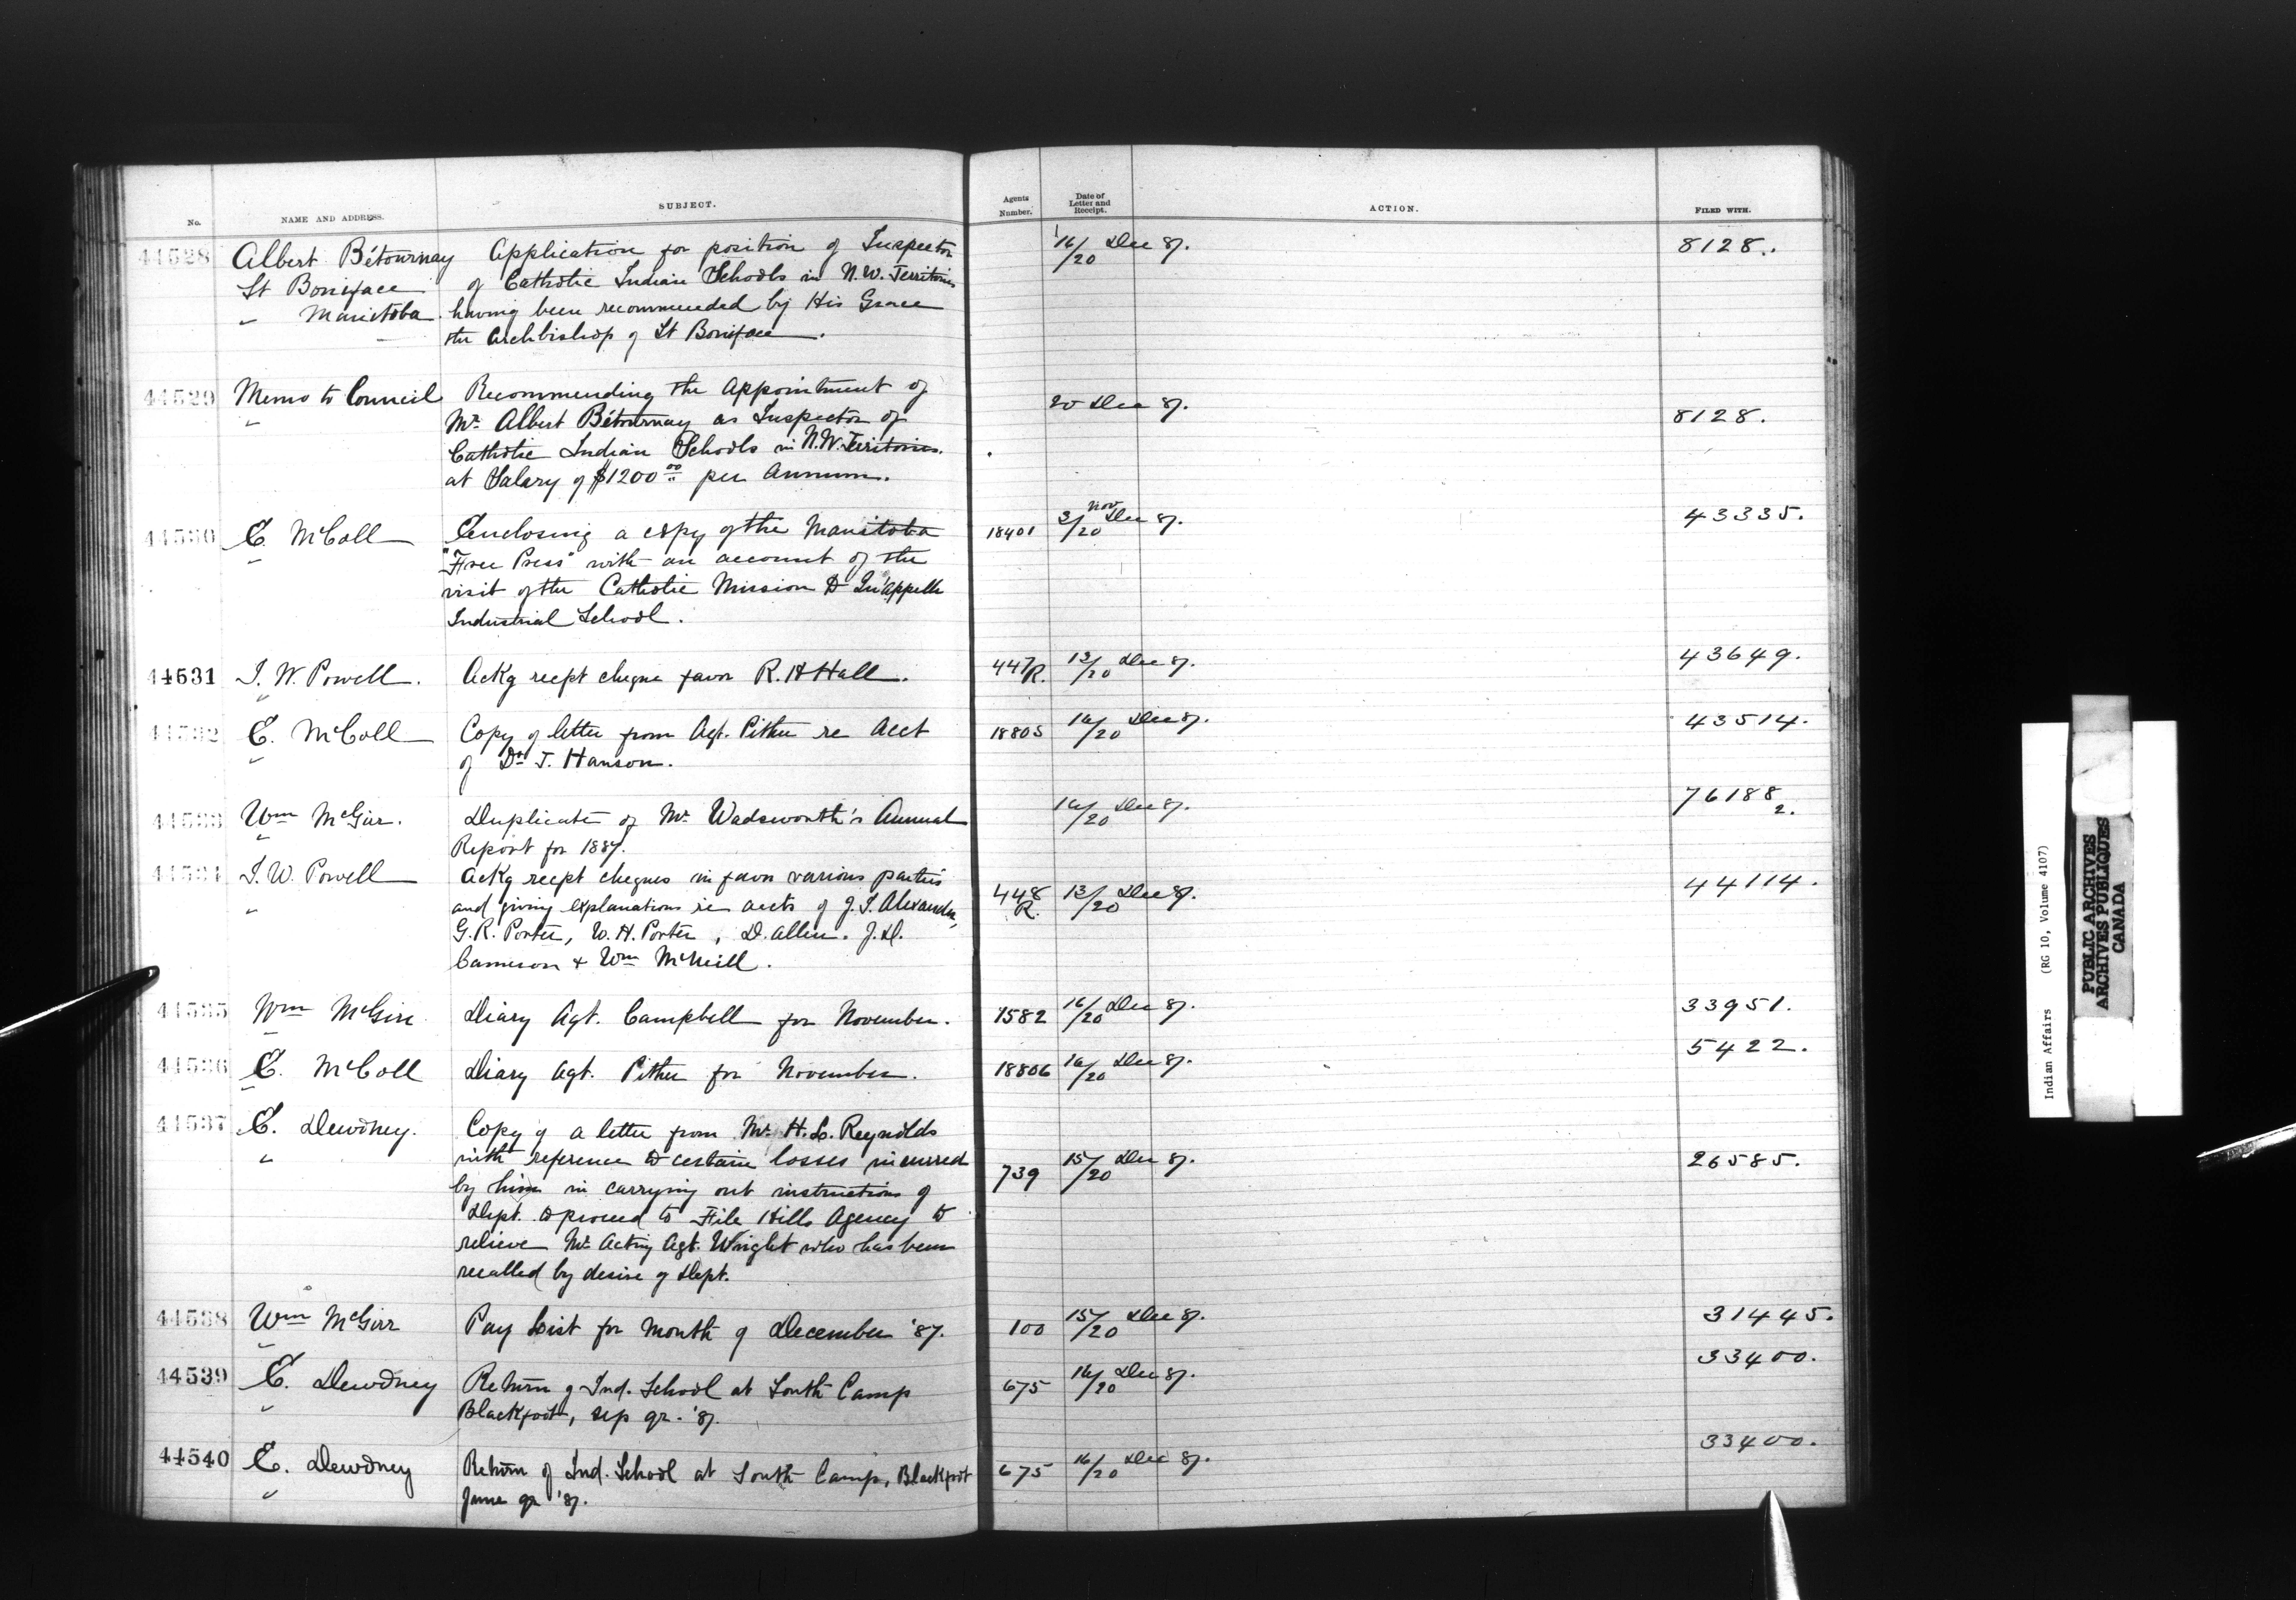 No.
NAME AND ADDRESS.
SUBJECT.
Agents Number.
Date of Letter and Receipt.
ACTION.
FILED WITH.
44528 Albert Bétournay Application for position of Inspector 16/20 Dec 87. 8128.
St Boniface of Catholic Indian Schools in N.W. Territories
" Manitoba. having been recommended by His Grace
the Archbishop of St Boniface.
44529 Memo to Council Recommending the Appointment of 20 Dec 87. 8128.
" Mr Albert Bétournay as Inspector of
Catholic Indian Schools in N.W. Territories.
at Salary of $1200.00 per Annum.
44530 E. McColl Enclosing a copy of the Manitoba 18401 3/20 Nov Dec 87. 43335.
" "Free Press" with an account of the
visit of the Catholic Mission to Qu'Appelle
Industrial School.
44531 I. W. Powell. Ackg recpt cheque favor R. H Hall. 447 R. 13/20 Dec 87. 43649.
44532 E. McColl Copy of letter from Agt. Pither re Acct 18805 16/20 Dec 87. 43514.
" of Dr T. Hanson.
44533 Wm McGirr. Duplicate of Mr Wadsworth's Annual 16/20 Dec 87. 76188 2.
" Report for 1887.
44534 I. W. Powell Ackg recpt cheques in favor various parties 448 R. 13/20 Dec 87. 44114.
" and giving explanations re accts of J. S. Alexander,
G. R. Porter, W. H. Porter, D. Allen. J. D.
Cameron & Wm McNeill.
44535 Wm McGirr Diary Agt. Campbell for November. 1582 16/20 Dec 87. 33951.
44536 E. McColl Diary Agt. Pither for November. 18806 16/20 Dec 87. 5422.
44537 E. Dewdney. Copy of a letter from Mr. H. L. Reynolds 739 15/20 Dec 87. 26585.
" with reference to certain losses incurred
by him in carrying out instructions of
Dept. to proceed to File Hills Agency to
relieve Mr Acting Agt. Wright who has been
recalled by desire of Dept.
44538 Wm McGirr Pay List for month of December '87. 100 15/20 Dec 87. 31445.
44539 E. Dewdney Return of Ind. School at South Camp 675 16/20 Dec 87. 33400.
" Blackfoot, Sep qr. '87.
44540 E. Dewdney Return of Ind. School at South Camp, Blackfoot 675 16/20 Dec 87. 33400.
" June qr '87.
Indian Affairs (RG 10, Volume 4107)
PUBLIC ARCHIVES
ARCHIVES PUBLIQUES
CANADA